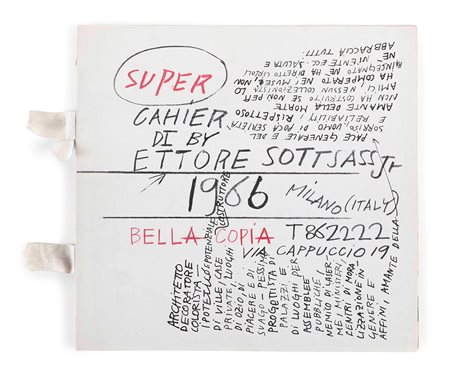 SUPER
CAHIER
DI BY
ETTORE SOTTSASS Jr
1966
MILANO (ITALY)
BELLA COPIA T862222
VIA CAPPUCCIO 19
ARCHITETTO
DECORATORE
COLORISTA
POTENZIALE
COSTRUTTORE
DI VILLE, CASE
PRIVATE, LUOGHI
DI OZIO, DI
PIACERE E DI
SVAGO - PESSIMO
PROGETTISTA DI
PALAZZI E
DI LUOGHI PER
ASSEMBLEE
PUBBLICHE,
NEMICO DI CASER-
ME, MINISTERI
CENTRI DI MORA-
LIZZAZIONE IN
GENERE E
AFFINI, AMANTE DELLA
PACE GENERALE E DEL
SORRISO, UOMO DI POCA SERIETÀ
E RELIABILITY, RISPETTOSO
AMANTE DELLA MORTE
NON HA COSTRUITO SE NON PER
AMICI, NESSUN COLLEZIONISTA LO
HA COMPERATO NEI MUSEI, NON
INSEGNATO NE HA DIRETTO
NE ECC. SALUTA E
ABBRACCIA TUTTI.